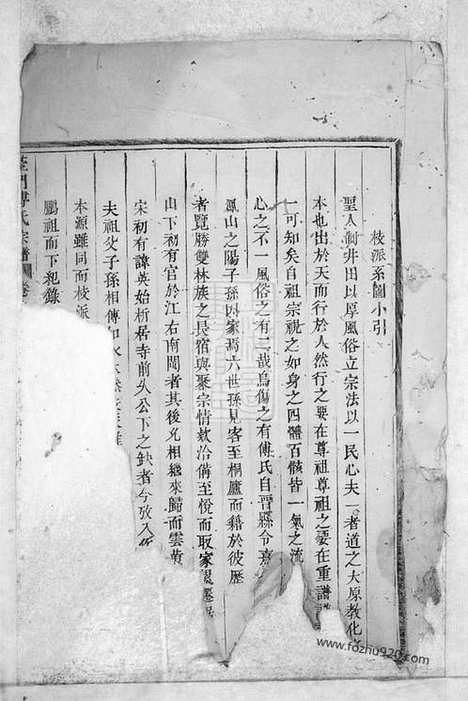 枝派系圖小引
聖人制井田以厚風俗立宗法以一民心夫一者道之大原教化
本也出於天而行於人然行之要在尊祖尊祖之要在重譜
一可知矣自祖宗視之如身之四體百骸皆一氣之流
心之不一風俗之有二哉烏傷之有傅氏自晉縣令嘉
鳳山之陽子孫因家焉六世孫見客至桐廬而籍於彼歷
者覽勝雙林族之長宿與聚宗情欵洽備至悅而取家
山下初有官於江右南閩者其後兄相繼來歸而雲黃
宋初有諱英始析居寺前頭公下之缺者今攷入
夫祖父子孫相傳如水木
本源雖同而枝派
鵬祖而下紀錄
門傅氏宗譜 圖 卷
www.fozhu920.com